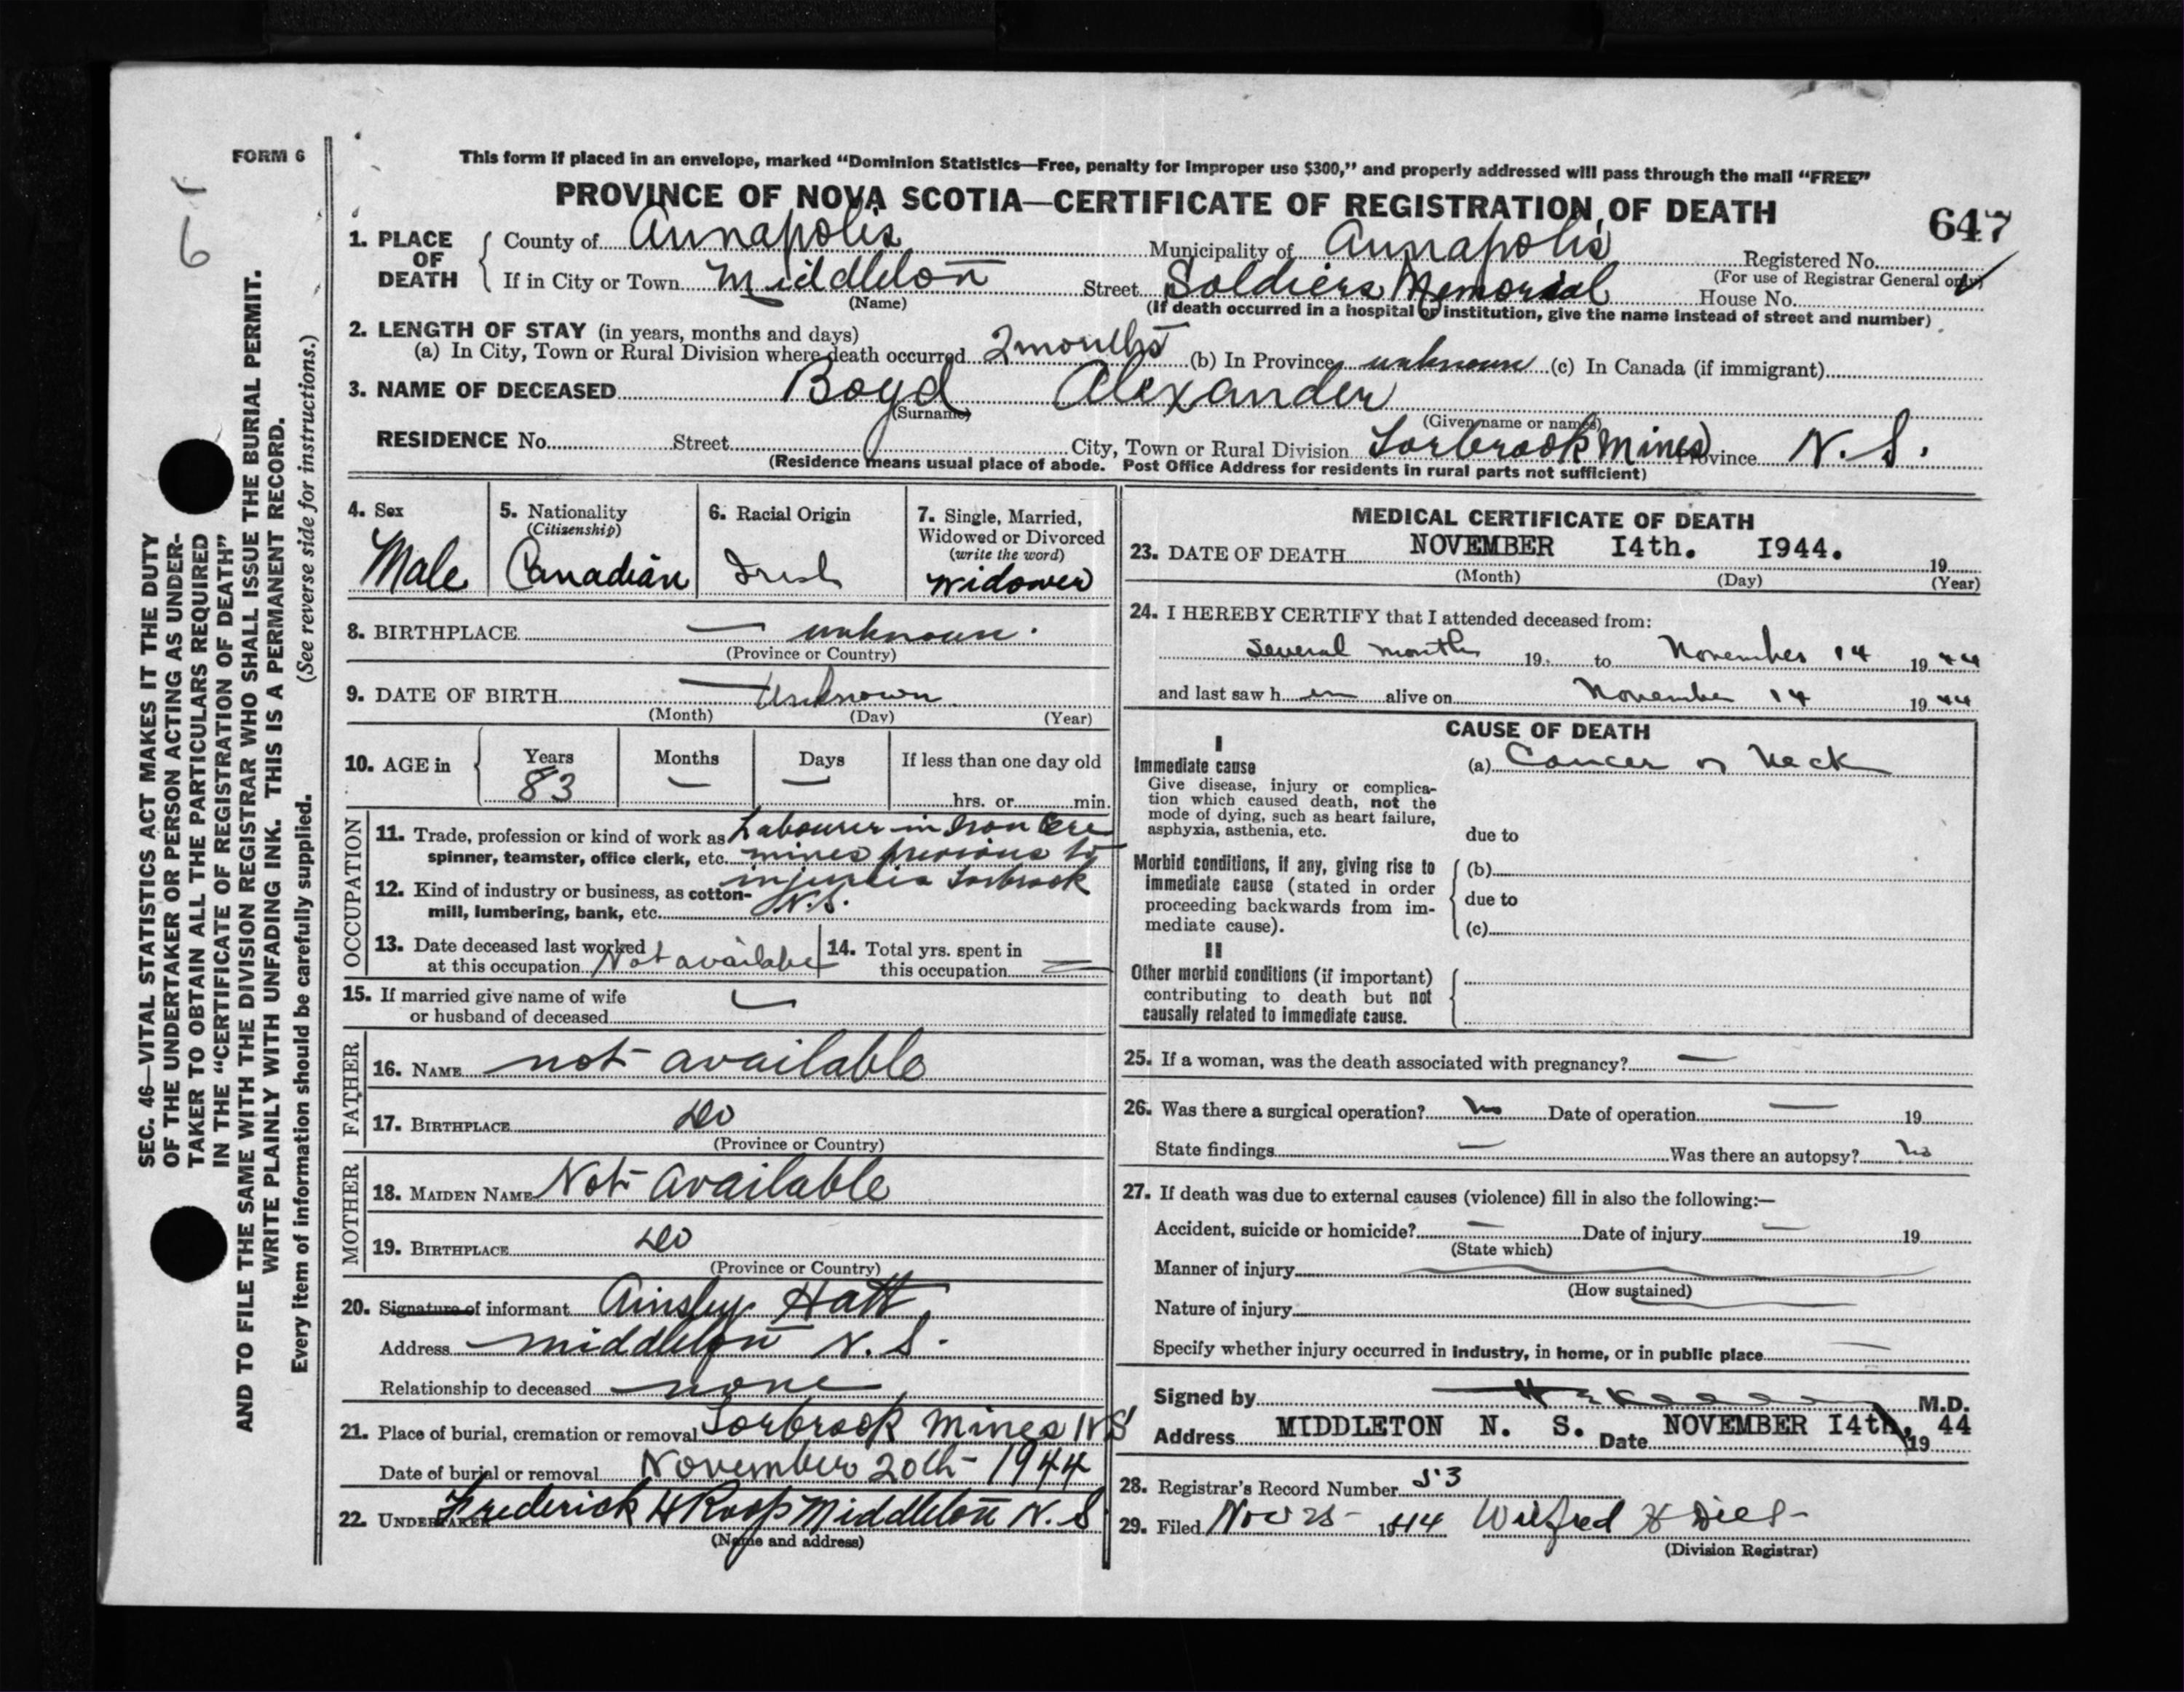 FORM 6
6
SEC. 46—VITAL STATISTICS ACT MAKES IT THE DUTY
OF THE UNDERTAKER OR PERSON ACTING AS UNDER-
TAKER TO OBTAIN ALL THE PARTICULARS REQUIRED
IN THE "CERTIFICATE OF REGISTRATION OF DEATH"
AND TO FILE THE SAME WITH THE DIVISION REGISTRAR WHO SHALL ISSUE THE BURIAL PERMIT.
WRITE PLAINLY WITH UNFADING INK. THIS IS A PERMANENT RECORD.
Every item of information should be carefully supplied. (See reverse side for instructions.)
This form if placed in an envelope, marked "Dominion Statistics—Free, penalty for improper use $300," and properly addressed will pass through the mail "FREE"
PROVINCE OF NOVA SCOTIA—CERTIFICATE OF REGISTRATION OF DEATH
647
1. PLACE OF DEATH
County of Annapolis Municipality of Annapolis Registered No.
(For use of Registrar General only)
If in City or Town Middleton Street Soldiers Memorial House No.
(Name) (If death occurred in a hospital or institution, give the name instead of street and number)
2. LENGTH OF STAY (in years, months and days)
(a) In City, Town or Rural Division where death occurred 2 months (b) In Province unknown (c) In Canada (if immigrant)
3. NAME OF DECEASED Boyd Alexander
(Surname) (Given name or names)
RESIDENCE No. Street City, Town or Rural Division Torbrook Mines Province N.S.
(Residence means usual place of abode. Post Office Address for residents in rural parts not sufficient)
4. Sex
Male
5. Nationality
(Citizenship)
Canadian
6. Racial Origin
Irish
7. Single, Married,
Widowed or Divorced
(write the word)
Widower
8. BIRTHPLACE — unknown.
(Province or Country)
9. DATE OF BIRTH — Unknown
(Month) (Day) (Year)
10. AGE in Years Months Days If less than one day old
83 — — hrs. or min.
OCCUPATION
11. Trade, profession or kind of work as Labourer in Iron Ore
spinner, teamster, office clerk, etc. mines previous to
12. Kind of industry or business, as cotton- Torbrook
mill, lumbering, bank, etc. N.S.
13. Date deceased last worked
at this occupation Not available
14. Total yrs. spent in
this occupation —
15. If married give name of wife
or husband of deceased —
FATHER
16. NAME not available
17. BIRTHPLACE Do
(Province or Country)
MOTHER
18. MAIDEN NAME Not available
19. BIRTHPLACE Do
(Province or Country)
20. Signature of informant Ainsley Hatt
Address Middleton N.S.
Relationship to deceased none
21. Place of burial, cremation or removal Torbrook Mines NS
Date of burial or removal November 20th - 1944
22. UNDERTAKER Frederick H Roop Middleton N.S
(Name and address)
MEDICAL CERTIFICATE OF DEATH
23. DATE OF DEATH NOVEMBER I4th. I944. 19
(Month) (Day) (Year)
24. I HEREBY CERTIFY that I attended deceased from:
several months 19 to November 14 1944
and last saw h im alive on November 14 1944
CAUSE OF DEATH
I
Immediate cause
Give disease, injury or complica-
tion which caused death, not the
mode of dying, such as heart failure,
asphyxia, asthenia, etc.
(a) Cancer of Neck
due to
Morbid conditions, if any, giving rise to
immediate cause (stated in order
proceeding backwards from im-
mediate cause).
(b)
due to
(c)
II
Other morbid conditions (if important)
contributing to death but not
causally related to immediate cause.
25. If a woman, was the death associated with pregnancy? —
26. Was there a surgical operation? No Date of operation — 19
State findings — Was there an autopsy? No
27. If death was due to external causes (violence) fill in also the following:—
Accident, suicide or homicide? — Date of injury — 19
(State which)
Manner of injury
(How sustained)
Nature of injury
Specify whether injury occurred in industry, in home, or in public place —
Signed by M.D.
Address MIDDLETON N. S. Date NOVEMBER I4th, 19 44
28. Registrar's Record Number 53
29. Filed Nov 25 - 1944 Wilfred H
(Division Registrar)